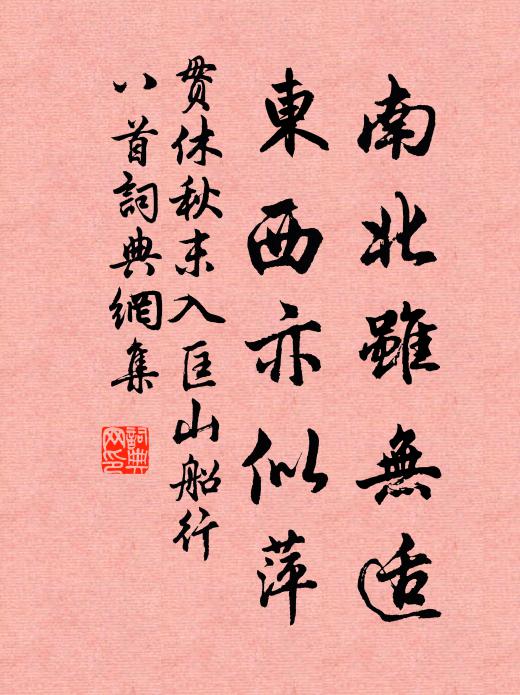 南北雖無適
東西亦似萍
貫休秋末入匡山船行
八首詞典網集
詞典
网印